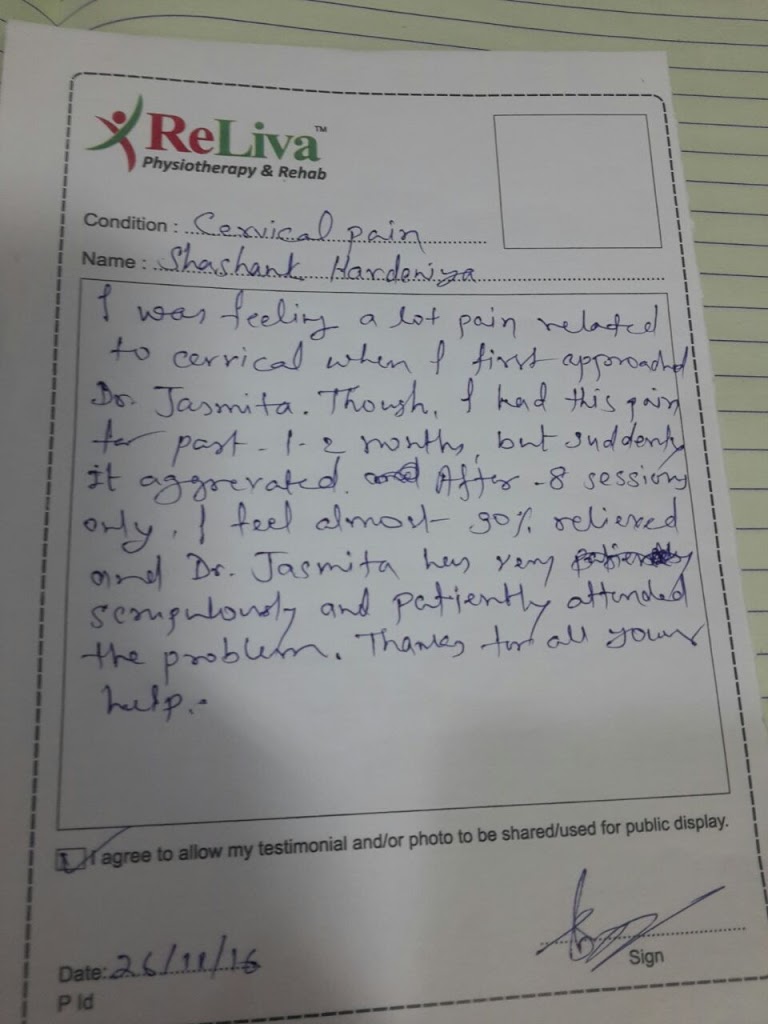 ReLiva™
Physiotherapy & Rehab
Condition : Cervical pain
Name : Shashank Hardeniya
I was feeling a lot pain related
to cervical when I first approached
Dr. Jasmita. Though, I had this pain
for past - 1-2 months, but suddenly
it aggrevated. After -8 sessions
only, I feel almost 90% relieved
and Dr. Jasmita has very
scrupulously and patiently attended
the problem. Thanks for all your
help.-
I agree to allow my testimonial and/or photo to be shared/used for public display.
Sign
Date: 26/11/16
P Id